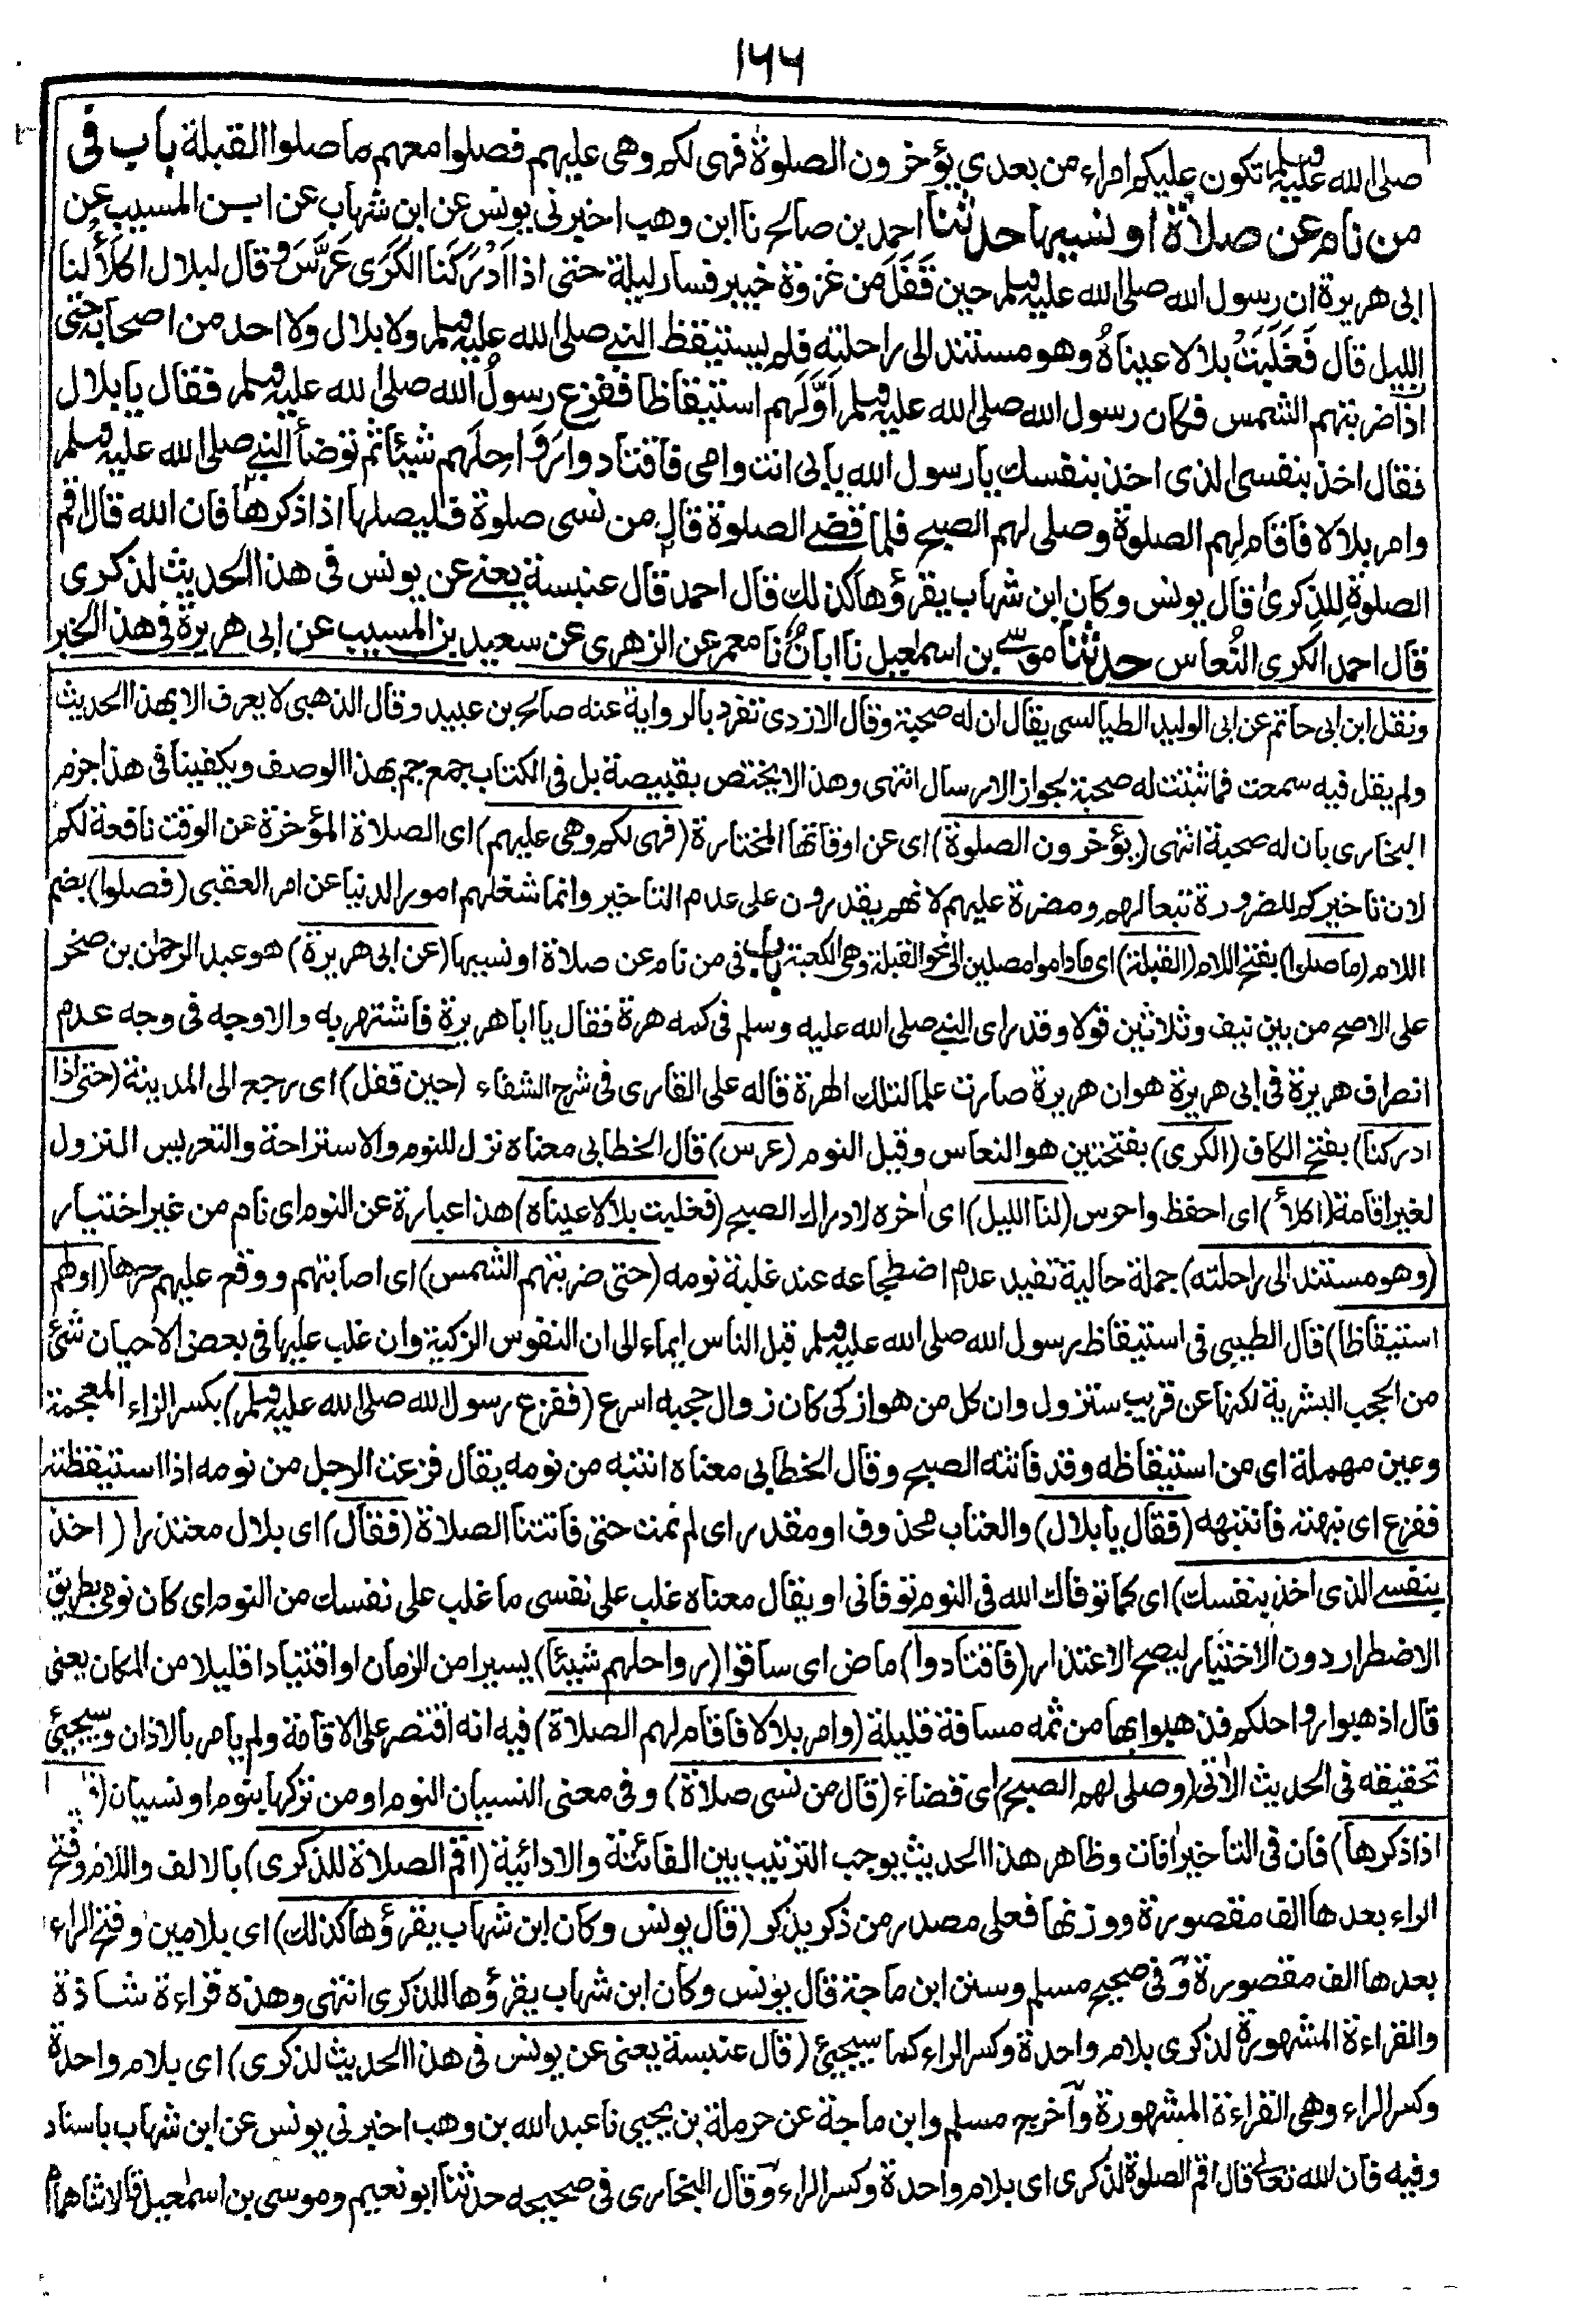 ۱۶۶
صلى الله عليه وسلم تكون عليكم امراء من بعدى يؤخرون الصلوة فهى لكم وهى عليهم فصلوا معهم ما صلوا القبلة باب فى
من نام عن صلاة او نسيها حدثنا احمد بن صالح نا ابن وهب اخبرنى يونس عن ابن شهاب عن ابن المسيب عن
ابى هريرة ان رسول الله صلى الله عليه وسلم حين قَفَلَ من غزوة خيبر فسار ليلة حتى اذا اَدْرَكَنا الكَرَى عَرَّسَ وقال لبلال اكلأ لنا
الليل قال فَغَلَبَتْ بلالا عيناهُ وهو مستند الى راحلته فلم يستيقظ النبى صلى الله عليه وسلم ولا بلال ولا احد من اصحابه حتى
اذا ضربتهم الشمس فكان رسول الله صلى الله عليه وسلم اَوَّلَهم استيقاظا ففزع رسولُ الله صلى الله عليه وسلم فقال يا بلال
فقال اخذ بنفسى الذى اخذ بنفسك يا رسول الله بابى انت وامى فاقتادوا رَوَاحِلَهم شيئا ثم توضأ النبى صلى الله عليه وسلم
وامر بلالا فاقام لهم الصلوة وصلى لهم الصبح فلما قضى الصلوة قال من نسى صلوة فليصلها اذا ذكرها فان الله قال اقم
الصلوة لِلذِكرىٰ قال يونس وكان ابن شهاب يقرؤها كذلك قال احمد قال عنبسة يعنى عن يونس فى هذا الحديث لذكرى
قال احمد الكرى النُعاس حدثنا موسى بن اسمٰعيل نا ابانُ نا معمر عن الزهرى عن سعيد بن المسيب عن ابى هريرة فى هذا الخبر
ونقل ابن ابى حاتم عن ابى الوليد الطيالسى يقال ان له صحبة وقال الازدى تفرد بالرواية عنه صالح بن عبيد وقال الذهبى لا يعرف الا بهذا الحديث
ولم يقل فيه سمعت فما ثبتت له صحبة بجواز الارسال انتهى وهذا لا يختص بقبيصة بل فى الكتاب جمع جم بهذا الوصف ويكفينا فى هذا جزم
البخارى بان له صحبة انتهى (يؤخرون الصلوة) اى عن اوقاتها المختارة (فهى لكم وهى عليهم) اى الصلاة المؤخرة عن الوقت نافعة لكم
لان تاخيركم للضرورة تبعا لهم ومضرة عليهم لانهم يقدرون على عدم التاخير وانما شغلهم امور الدنيا عن امر العقبى (فصلوا) بضم
اللام (ما صلوا) بفتح اللام (القبلة) اى ما داموا مصلين الى نحو القبلة وهى الكعبة باب فى من نام عن صلاة او نسيها (عن ابى هريرة) هو عبد الرحمٰن بن صخر
على الاصح من بين نيف وثلاثين قولا وقد راى النبى صلى الله عليه وسلم فى كمه هرة فقال يا ابا هريرة فاشتهر به والاوجه فى وجه عدم
انصراف هريرة فى ابى هريرة هو ان هريرة صارت علما لتلك الهرة قاله على القارى فى شرح الشفاء (حين قفل) اى رجع الى المدينة (حتى اذا
ادركنا) بفتح الكاف (الكرى) بفتحتين هو النعاس وقيل النوم (عرس) قال الخطابى معناه نزل للنوم والاستراحة والتعريس النزول
لغير اقامة (اكلأ) اى احفظ واحرس (لنا الليل) اى اٰخره لادراك الصبح (فغلبت بلالا عيناه) هذا عبارة عن النوم اى نام من غير اختيار
(وهو مستند الى راحلته) جملة حالية تفيد عدم اضطجاعه عند غلبة نومه (حتى ضربتهم الشمس) اى اصابتهم ووقع عليهم حرها (اولهم
استيقاظا) قال الطيبى فى استيقاظ رسول الله صلى الله عليه وسلم قبل الناس ايماء الى ان النفوس الزكية وان غلب عليها فى بعض الاحيان شئ
من الحجب البشرية لكنها عن قريب ستزول وان كل من هو ازكى كان زوال حجبه اسرع (ففزع رسول الله صلى الله عليه وسلم) بكسر الزاء المعجمة
وعين مهملة اى من استيقاظه وقد فاتته الصبح وقال الخطابى معناه انتبه من نومه يقال فزعت الرجل من نومه اذا استيقظته
ففزع اى نبهته فانتبهه (فقال يا بلال) والعتاب محذوف او مقدر اى لم نمت حتى فاتتنا الصلاة (فقال) اى بلال معتذرا (اخذ
بنفسى الذى اخذ بنفسك) اى كما توفاك الله فى النوم توفانى او يقال معناه غلب على نفسى ما غلب على نفسك من النوم اى كان نومى بطريق
الاضطرار دون الاختيار ليصح الاعتذار (فاقتادوا) ماض اى ساقوا (رواحلهم شيئا) يسيرا من الزمان او اقتيادا قليلا من المكان يعنى
قال اذهبوا رواحلكم فذهبوا بها من ثمه مسافة قليلة (وامر بلالا فاقام لهم الصلاة) فيه انه اقتصر على الاقامة ولم يامر بالاذان وسيجيئ
تحقيقه فى الحديث الاٰتى (وصلى لهم الصبح) اى قضاء (قال من نسى صلاة) وفى معنى النسيان النوم او من تركها بنوم او نسيان
اذا ذكرها) فان فى التاخير اٰفات وظاهر هذا الحديث يوجب الترتيب بين الفائتة والادائية (اقم الصلاة للذكرى) بالالف واللام وفتح
الراء بعدها الف مقصورة ووزنها فعلى مصدر من ذكر يذكر (قال يونس وكان ابن شهاب يقرؤها كذلك) اى بلامين وفتح الراء
بعدها الف مقصورة وفى صحيح مسلم وسنن ابن ماجة قال يونس وكان ابن شهاب يقرؤها للذكرى انتهى وهذه قراءة شاذة
والقراءة المشهورة لذكرى بلام واحدة وكسر الراء كما سيجيئ (قال عنبسة يعنى عن يونس فى هذا الحديث لذكرى) اى بلام واحدة
وكسر الراء وهى القراءة المشهورة واخرج مسلم وابن ماجة عن حرملة بن يحيى نا عبد الله بن وهب اخبرنى يونس عن ابن شهاب باسناد
وفيه فان الله تعالى قال اقم الصلوة لذكرى اى بلام واحدة وكسر الراء وقال البخارى فى صحيحه حدثنا ابو نعيم وموسى بن اسمٰعيل قالا ثنا همام